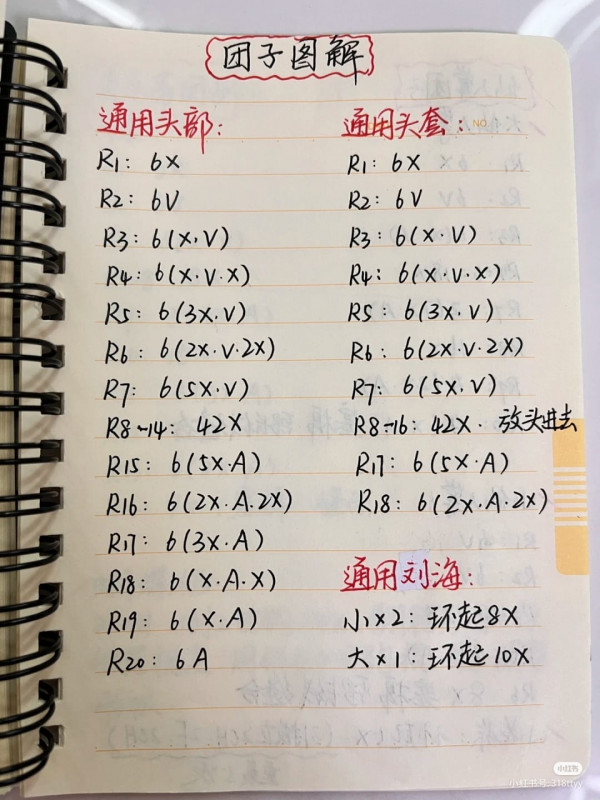 团子图解
通用头部:
R1: 6X
R2: 6V
R3: 6(X.V)
R4: 6(X.V.X)
R5: 6(3X.V)
R6: 6(2X.V.2X)
R7: 6(5X.V)
R8~14: 42X
R15: 6(5X.A)
R16: 6(2X.A.2X)
R17: 6(3X.A)
R18: 6(X.A.X)
R19: 6(X.A)
R20: 6A
通用头套: NO.
R1: 6X
R2: 6V
R3: 6(X.V)
R4: 6(X.V.X)
R5: 6(3X.V)
R6: 6(2X.V.2X)
R7: 6(5X.V)
R8-16: 42X. 放头进去
R17: 6(5X.A)
R18: 6(2X.A.2X)
通用刘海:
小×2: 环起8X
大×1: 环起10X
小红书